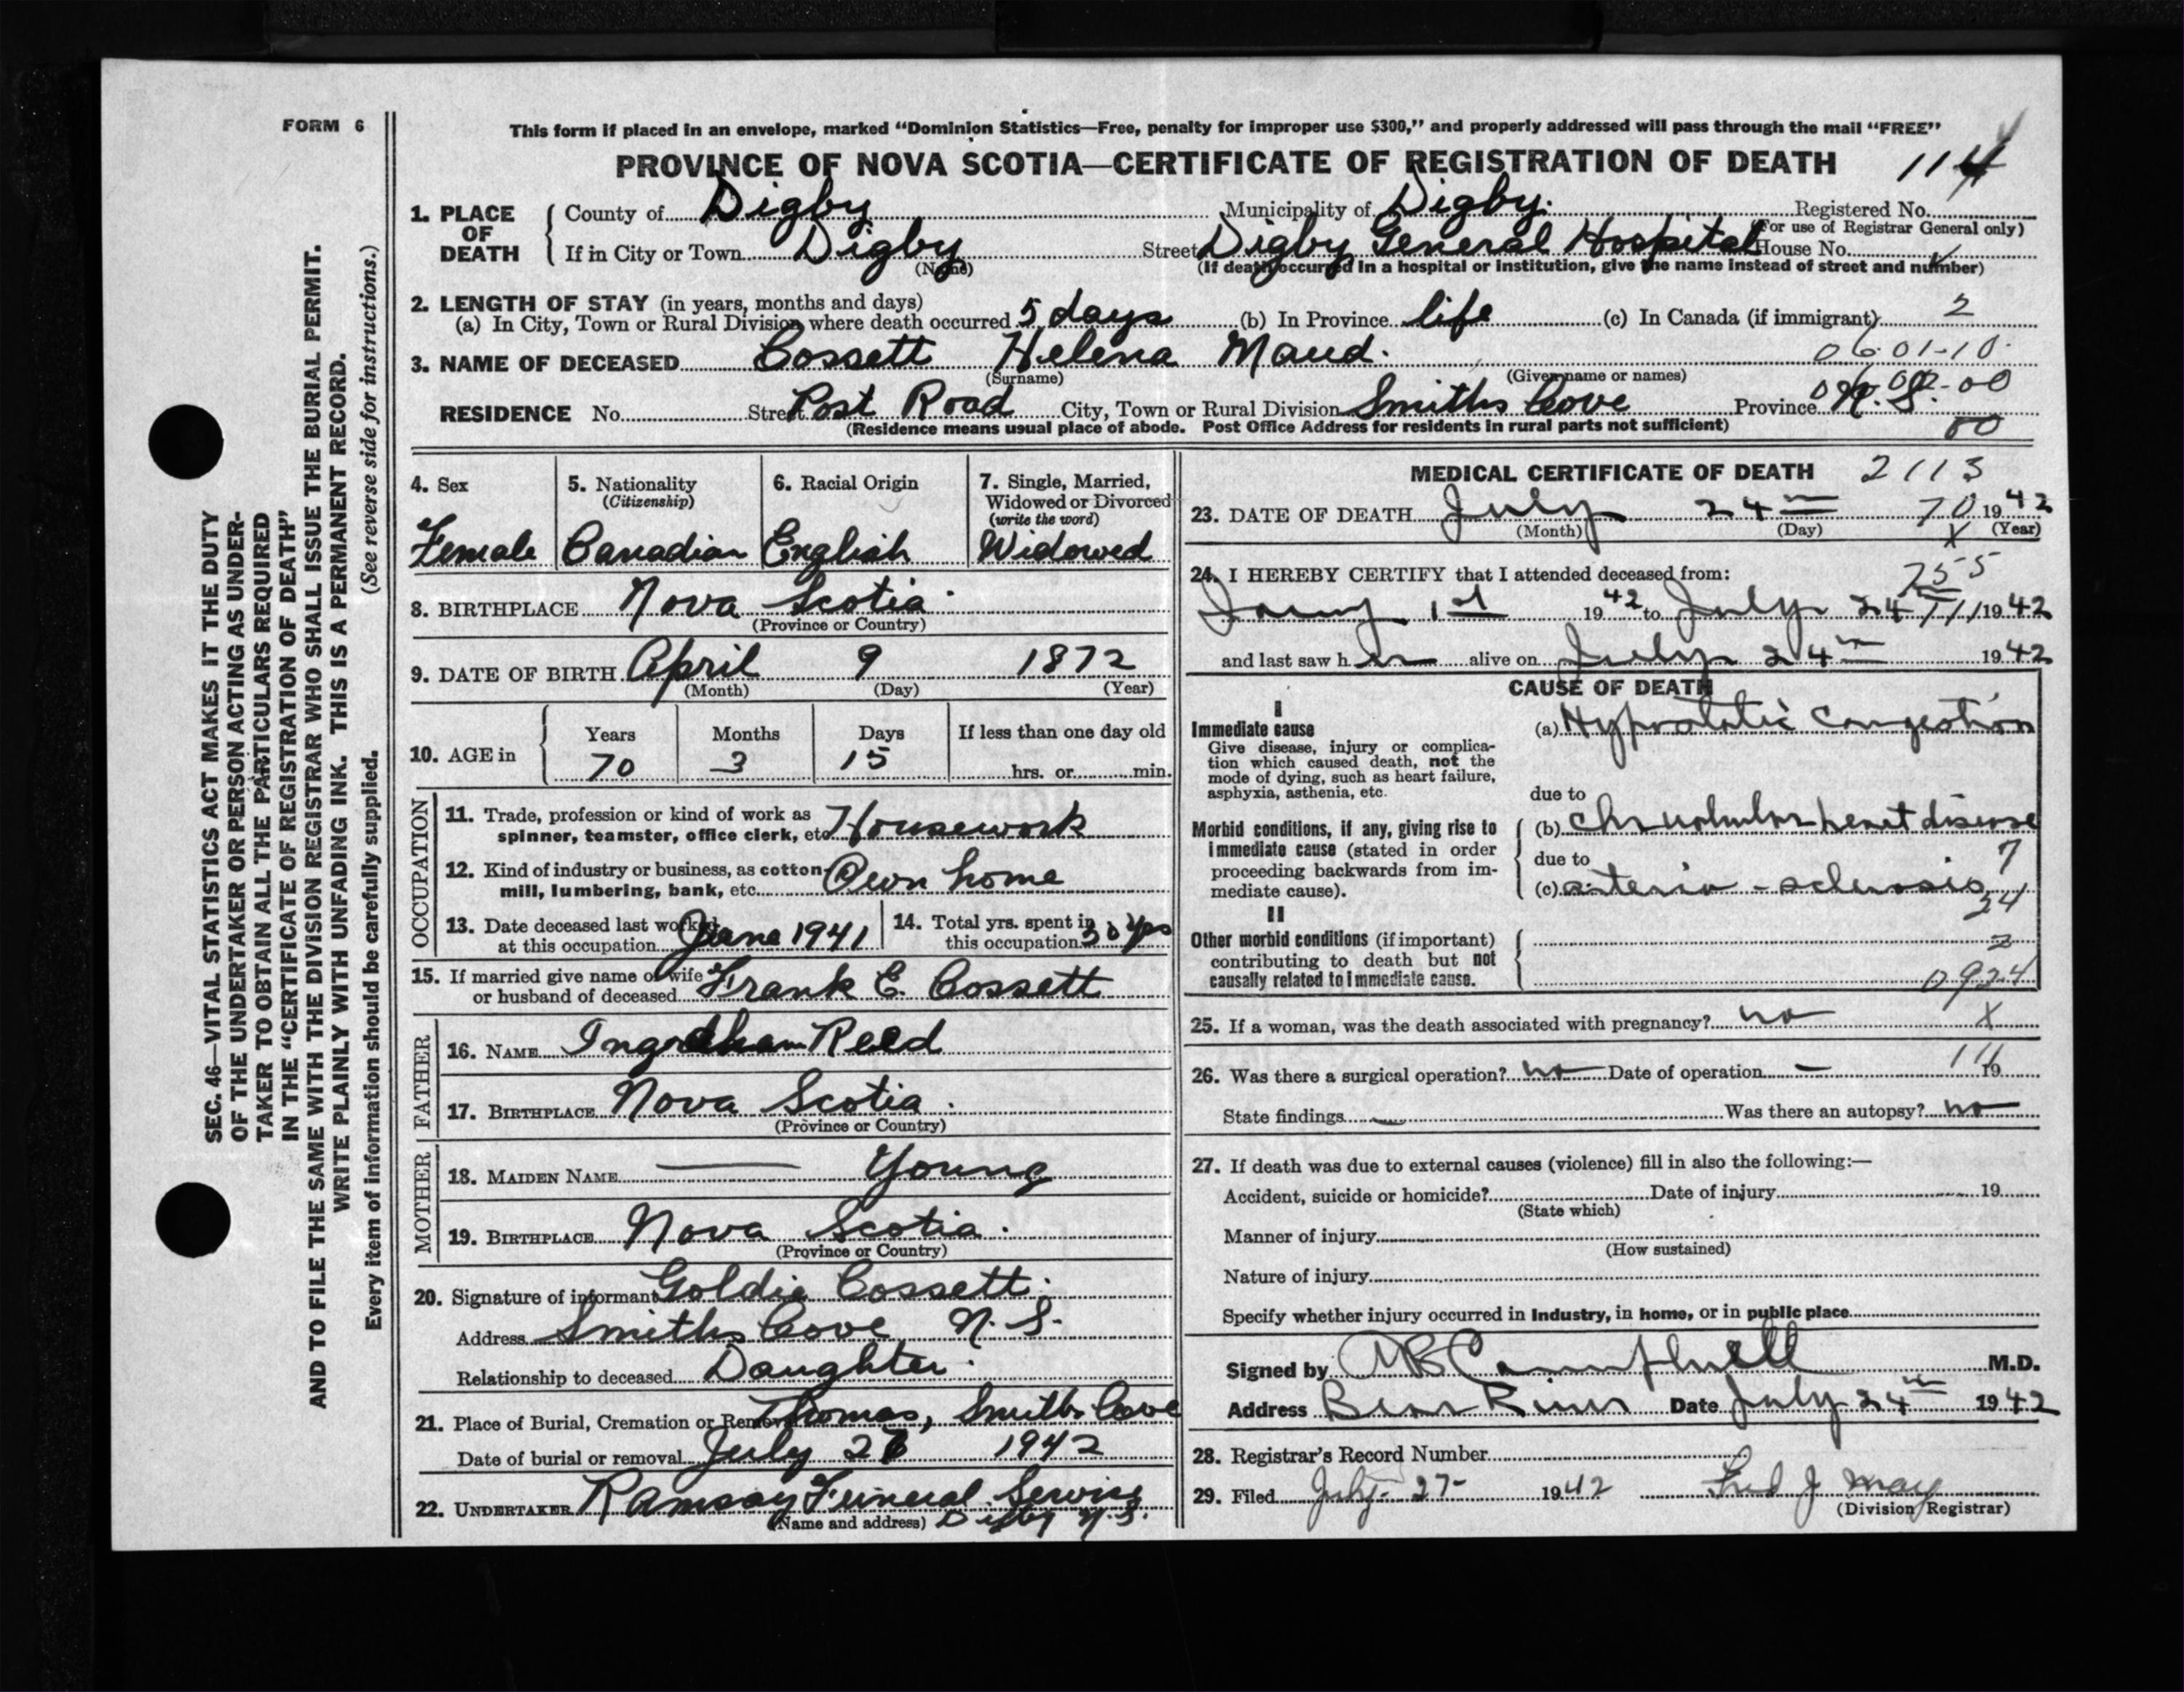 FORM 6
This form if placed in an envelope, marked “Dominion Statistics—Free, penalty for improper use $300,” and properly addressed will pass through the mail “FREE”
PROVINCE OF NOVA SCOTIA—CERTIFICATE OF REGISTRATION OF DEATH 114
SEC. 46—VITAL STATISTICS ACT MAKES IT THE DUTY
OF THE UNDERTAKER OR PERSON ACTING AS UNDER-
TAKER TO OBTAIN ALL THE PARTICULARS REQUIRED
IN THE “CERTIFICATE OF REGISTRATION OF DEATH”
AND TO FILE THE SAME WITH THE DIVISION REGISTRAR WHO SHALL ISSUE THE BURIAL PERMIT.
WRITE PLAINLY WITH UNFADING INK. THIS IS A PERMANENT RECORD.
Every item of information should be carefully supplied. (See reverse side for instructions.)
1. PLACE OF DEATH
County of Digby Municipality of Digby. Registered No.
(For use of Registrar General only)
If in City or Town Digby Street Digby General Hospital House No.
(Name) (If death occurred in a hospital or institution, give the name instead of street and number)
2. LENGTH OF STAY (in years, months and days)
(a) In City, Town or Rural Division where death occurred 5 days (b) In Province life (c) In Canada (if immigrant) 2
3. NAME OF DECEASED Cossett Helena Maud. 0601-10
(Surname) (Given name or names)
RESIDENCE No. Street Post Road City, Town or Rural Division Smiths Cove Province N.S.
(Residence means usual place of abode. Post Office Address for residents in rural parts not sufficient)
4. Sex
Female
5. Nationality
(Citizenship)
Canadian
6. Racial Origin
English
7. Single, Married,
Widowed or Divorced
(write the word)
Widowed
8. BIRTHPLACE Nova Scotia
(Province or Country)
9. DATE OF BIRTH April 9 1872
(Month) (Day) (Year)
10. AGE in
Years Months Days If less than one day old
70 3 15 hrs. or min.
OCCUPATION
11. Trade, profession or kind of work as
spinner, teamster, office clerk, etc. Housework
12. Kind of industry or business, as cotton
mill, lumbering, bank, etc. Own home
13. Date deceased last worked
at this occupation June 1941
14. Total yrs. spent in
this occupation 30 yrs
15. If married give name of wife
or husband of deceased Frank E. Cossett
FATHER
16. NAME Ingraham Reed
17. BIRTHPLACE Nova Scotia.
(Province or Country)
MOTHER
18. MAIDEN NAME — Young
19. BIRTHPLACE Nova Scotia.
(Province or Country)
20. Signature of informant Goldie Cossett.
Address Smiths Cove N.S.
Relationship to deceased Daughter.
21. Place of Burial, Cremation or Removal Thomas, Smiths Cove
Date of burial or removal July 26 1942
22. UNDERTAKER Ramsay Funeral Service
(Name and address) Digby N.S.
MEDICAL CERTIFICATE OF DEATH 2113
23. DATE OF DEATH July 24th 70 1942
(Month) (Day) X (Year)
24. I HEREBY CERTIFY that I attended deceased from:
1st 1942 to July 24th 1942
and last saw her alive on July 24th 1942
CAUSE OF DEATH
I
Immediate cause
Give disease, injury or complica-
tion which caused death, not the
mode of dying, such as heart failure,
asphyxia, asthenia, etc.
(a) Hypostatic Congestion
due to
Morbid conditions, if any, giving rise to
immediate cause (stated in order
proceeding backwards from im-
mediate cause).
(b) Chr valvular heart disease
due to 7
(c) arterio-sclerosis
24
II
Other morbid conditions (if important)
contributing to death but not
causally related to immediate cause.
2
0924
25. If a woman, was the death associated with pregnancy? no X
26. Was there a surgical operation? no Date of operation — 19
State findings — Was there an autopsy? no
27. If death was due to external causes (violence) fill in also the following:—
Accident, suicide or homicide? Date of injury 19
(State which)
Manner of injury
(How sustained)
Nature of injury
Specify whether injury occurred in industry, in home, or in public place
Signed by AB Campbell M.D.
Address Bear River Date July 24th 1942
28. Registrar’s Record Number
29. Filed July 27 1942 Fred J May
(Division Registrar)